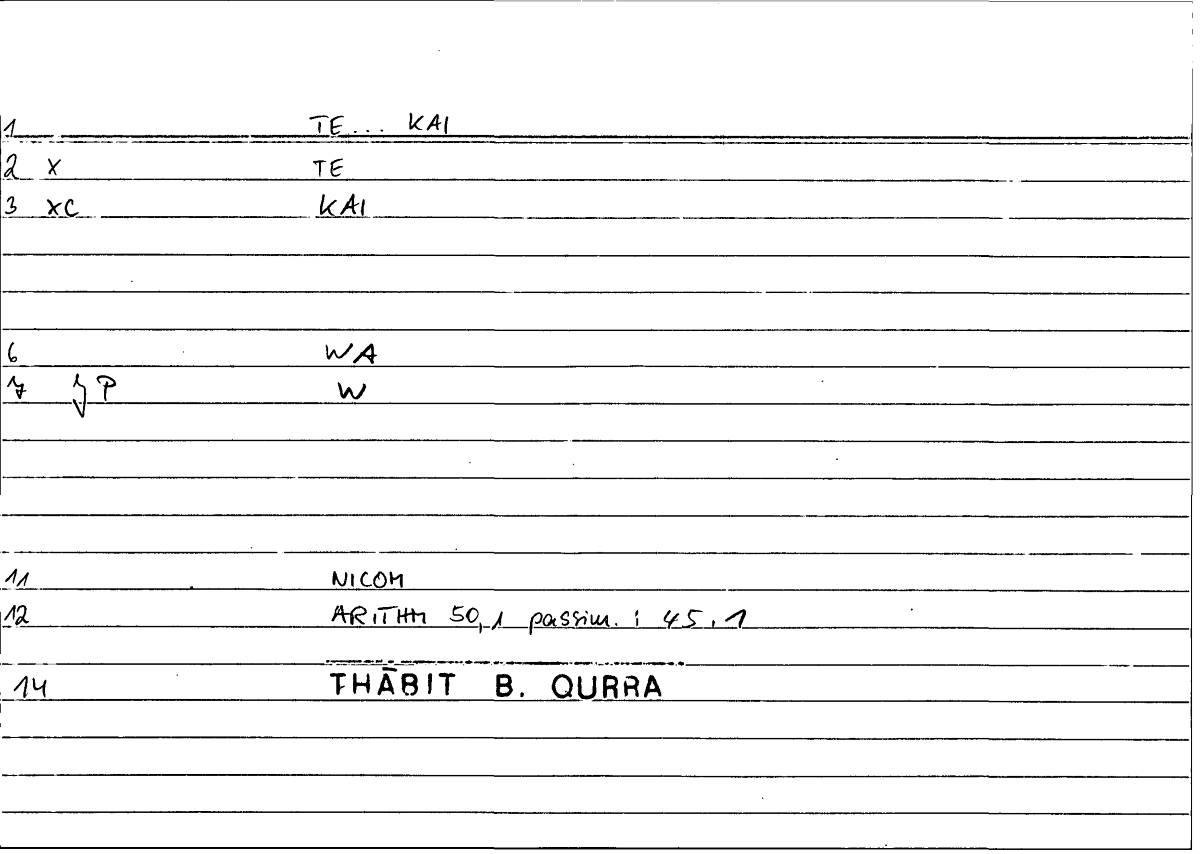 1 TE... KAI
2 X TE
3 XC KAI
6 WA
7 P W
11 NICOM
12 ARITHM 50,1 passim. : 45,1
14 THĀBIT B. QURRA